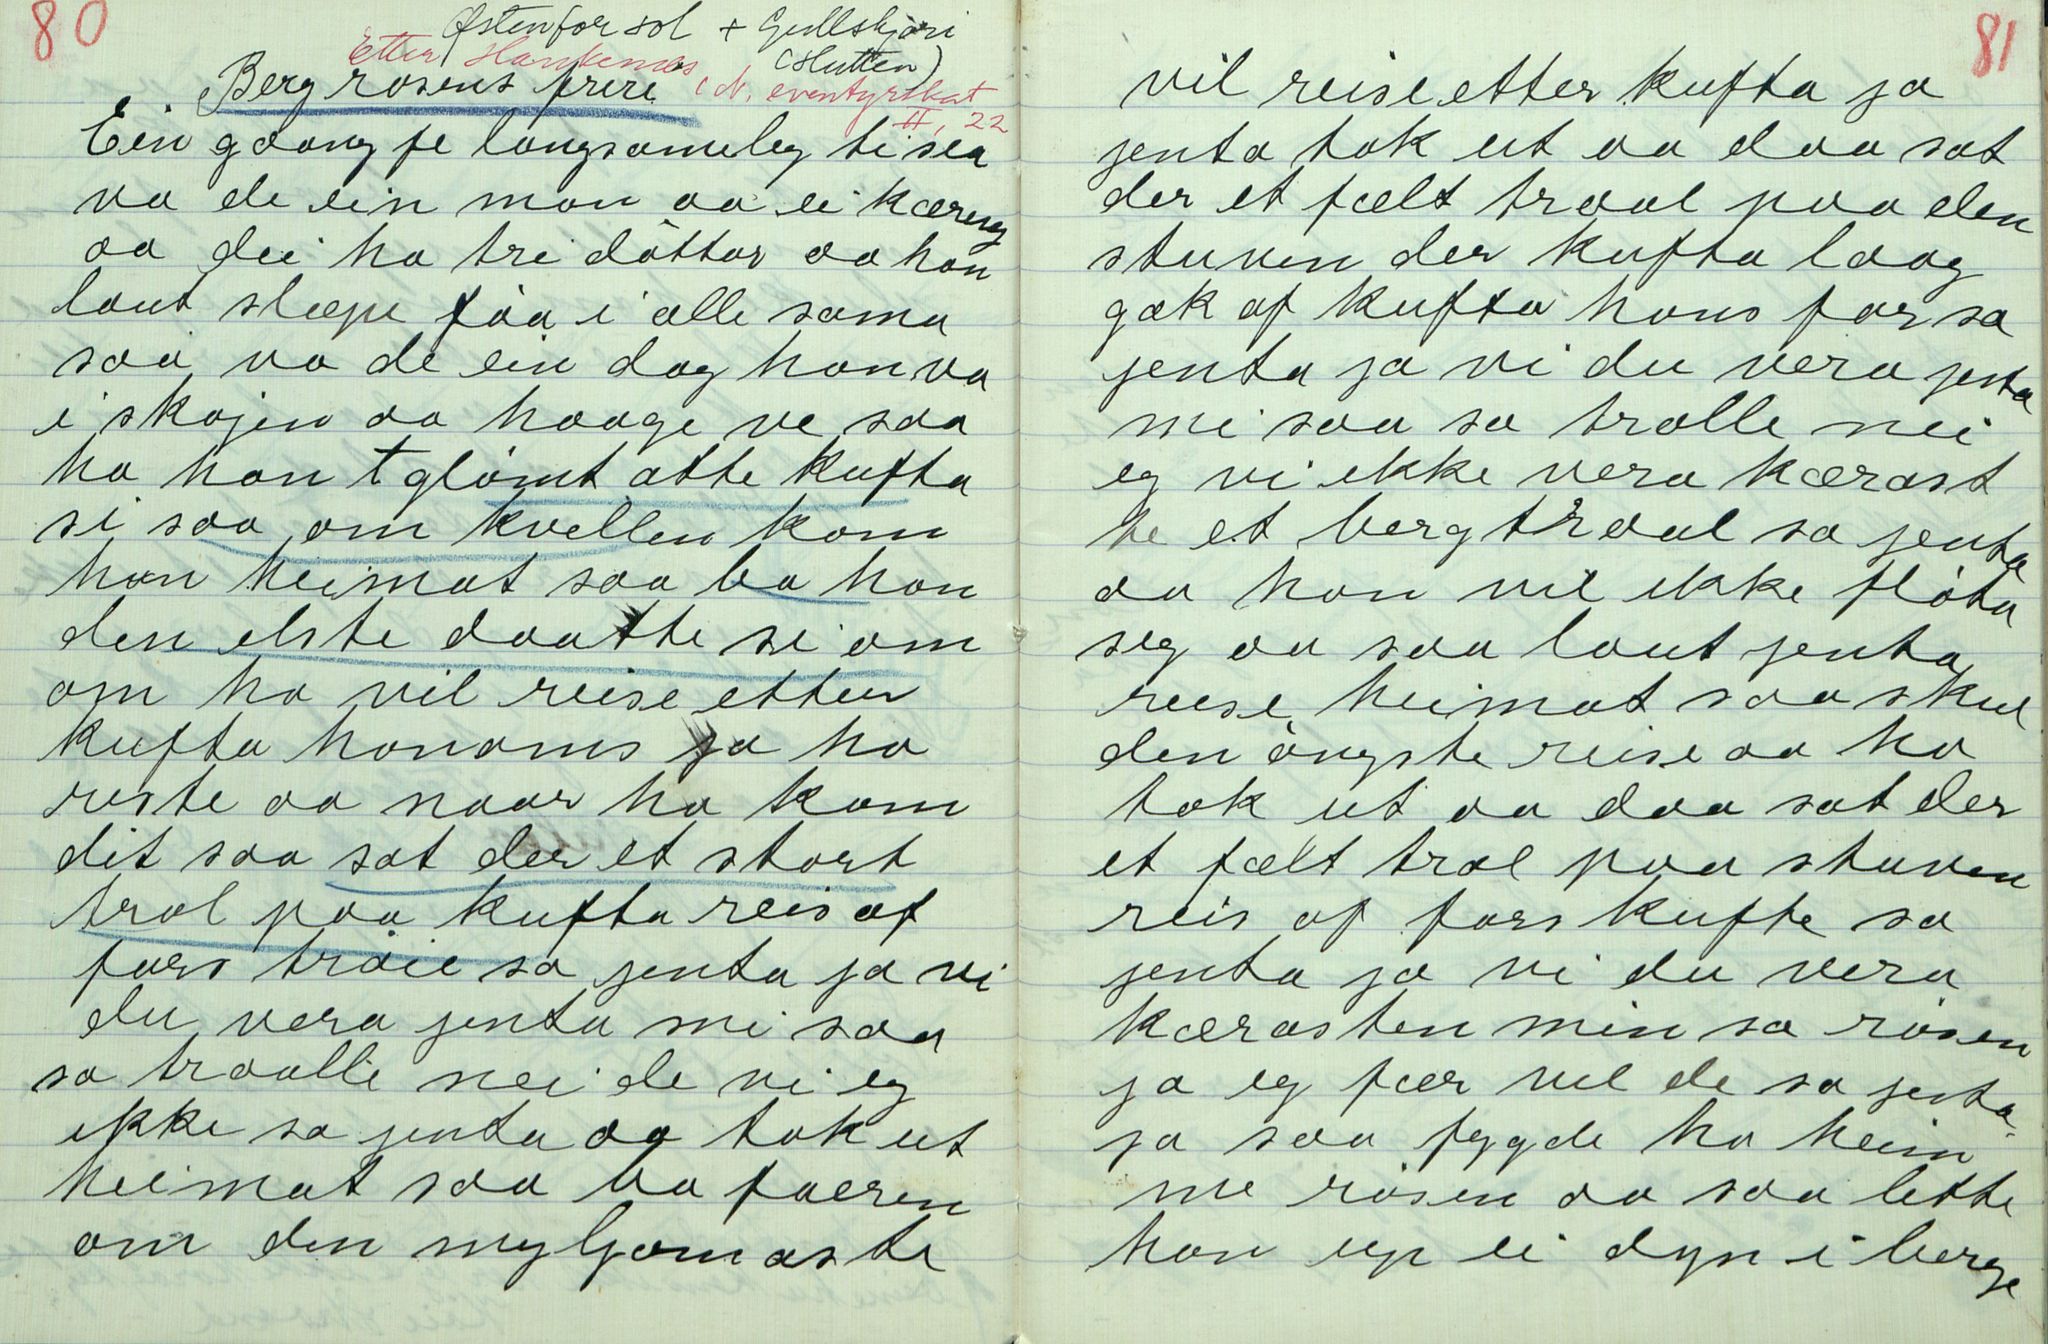 80
Østenfor sol + Gullskjøri
Etter (Hutten)
Bergrosens frere (N. eventyrskat
II, 22
Ein gaang fe langsameleg ti sea
va de ein man aa ei kæreng
aa dei ha tri döttar aa han
laut slæpe föa i alle sama
saa va de ein dag han va
i skojen aa haage ve saa
ha han glömt atte kufta
si saa om kvellen kom
han heimat saa ba han
den elste daatte si om
om ha vil reise etter
kufta honoms ja ha
reste aa naar ha kom
dit saa sat der et stort
trol paa kufta reis af
fars tröie sa jenta ja vi
du vera jenta mi saa
sa traalle nei de vi eg
ikke sa jenta aa tok ut
heimat saa ba faeren
om den myljomaste
81
vil reise etter kufta ja
jenta tok ut aa daa sat
der et fælt traal paa den
stuven der kufta laag
gak af kufta hans far sa
jenta ja vi du vera jenta
mi saa sa tralle nei
eg vi ikke vera kærast
te et bergtraal sa jenta
aa han vil ikke flöta
seg aa saa laut jenta
reise heimat saa skul
den öngste reise aa ha
tok ut aa daa sat der
et fælt trol paa stuven
reis af fars kufte sa
jenta ja vi du vera
kærasten min sa risen
ja eg fær vel de sa jenta
ja saa fygde ha heim
me risen aa saa lette
han up ei dyn i berge